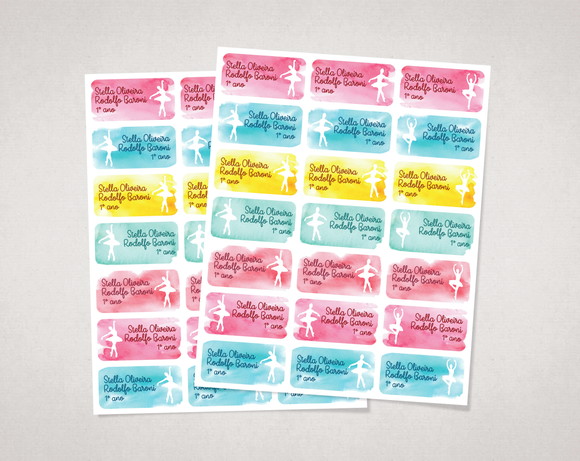 Stella Oliveira
Rodolfo Baroni
1° ano
Stella Oliveira
Rodolfo Baroni
1° ano
Stella Oliveira
Rodolfo Baroni
1° ano
Stella Oliveira
Rodolfo Baroni
1° ano
Stella Oliveira
Rodolfo Baroni
1° ano
Stella Oliveira
Rodolfo Baroni
1° ano
Stella Oliveira
Rodolfo Baroni
1° ano
Stella Oliveira
Rodolfo Baroni
1° ano
Stella Oliveira
Rodolfo Baroni
1° ano
Stella Oliveira
Rodolfo Baroni
1° ano
Stella Oliveira
Rodolfo Baroni
1° ano
Stella Oliveira
Rodolfo Baroni
1° ano
Stella Oliveira
Rodolfo Baroni
1° ano
Stella Oliveira
Rodolfo Baroni
1° ano
Stella Oliveira
Rodolfo Baroni
1° ano
Stella Oliveira
Rodolfo Baroni
1° ano
Stella Oliveira
Rodolfo Baroni
1° ano
Stella Oliveira
Rodolfo Baroni
1° ano
Stella Oliveira
Rodolfo Baroni
1° ano
Stella Oliveira
Rodolfo Baroni
1° ano
Stella Oliveira
Rodolfo Baroni
1° ano
Stella Oliveira
Rodolfo Baroni
1° ano
Stella Oliveira
Rodolfo Baroni
1° ano
Stella Oliveira
Rodolfo Baroni
1° ano
Stella Oliveira
Rodolfo Baroni
1° ano
Stella Oliveira
Rodolfo Baroni
1° ano
Stella Oliveira
Rodolfo Baroni
1° ano
Stella Oliveira
Rodolfo Baroni
1° ano